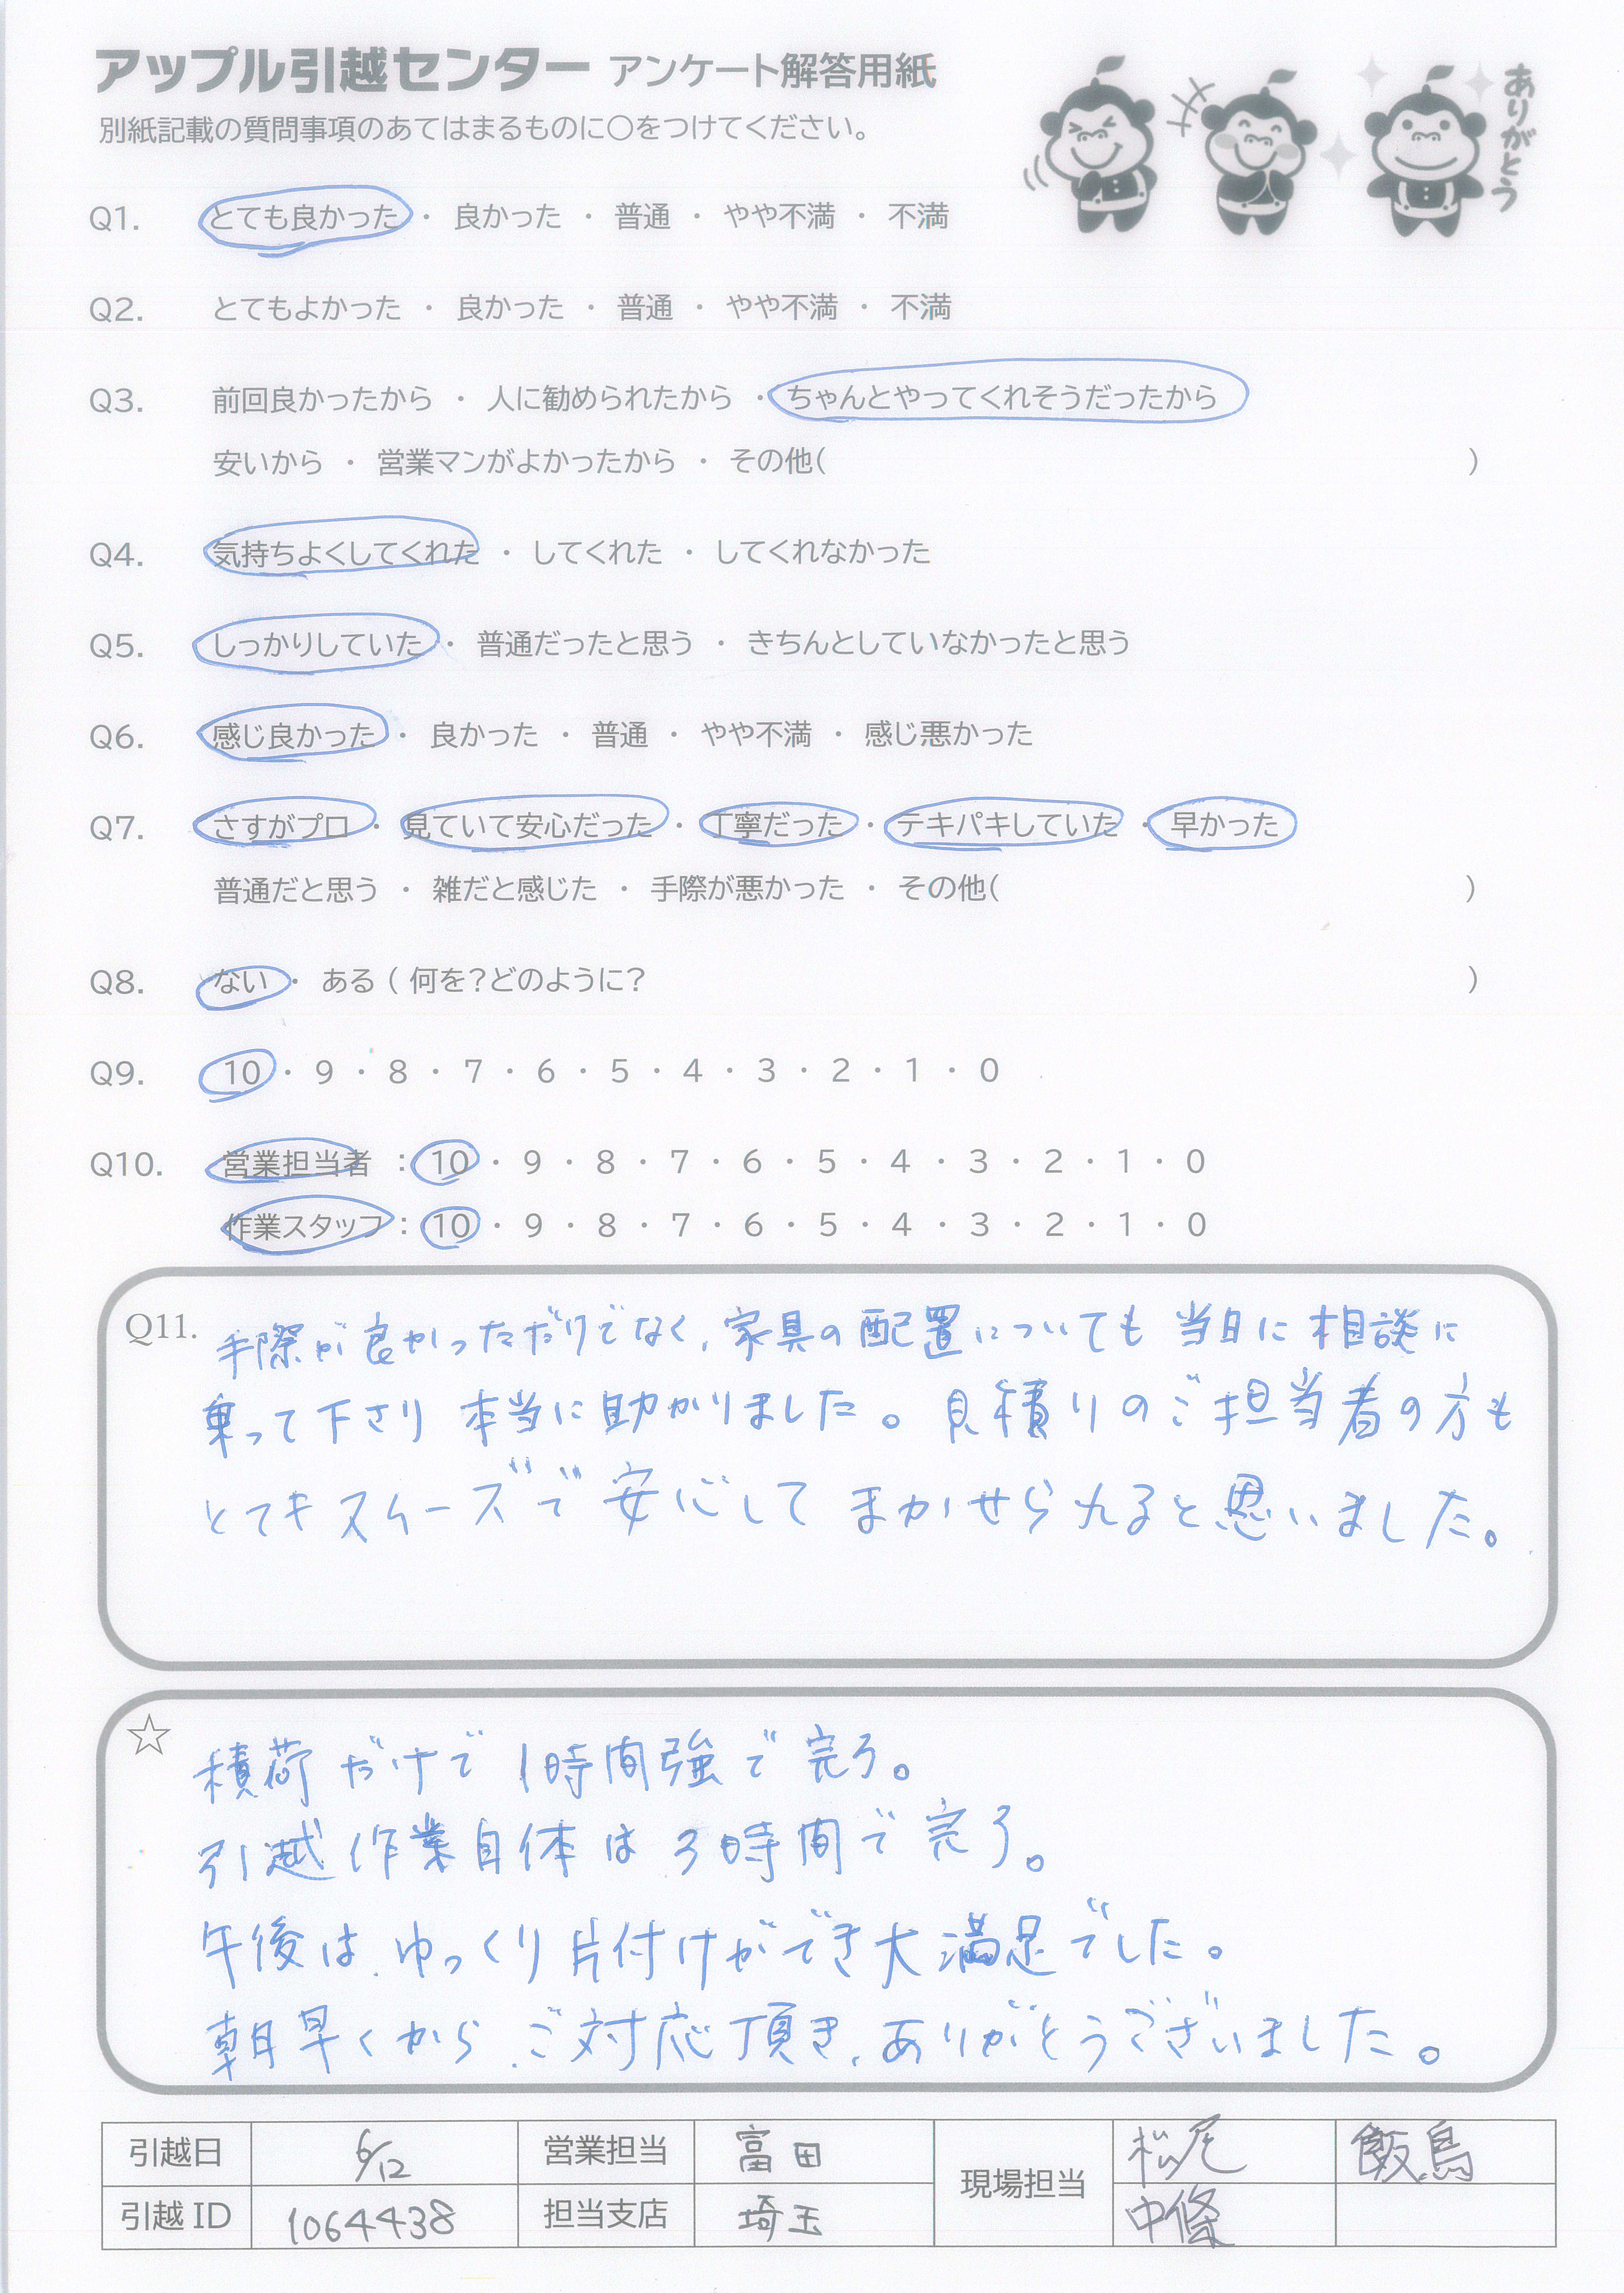 アップル引越センター アンケート解答用紙
別紙記載の質問事項のあてはまるものに○をつけてください。
ありがとう
Q1. とても良かった ・ 良かった ・ 普通 ・ やや不満 ・ 不満
Q2. とてもよかった ・ 良かった ・ 普通 ・ やや不満 ・ 不満
Q3. 前回良かったから ・ 人に勧められたから ・ ちゃんとやってくれそうだったから
安いから ・ 営業マンがよかったから ・ その他( )
Q4. 気持ちよくしてくれた ・ してくれた ・ してくれなかった
Q5. しっかりしていた ・ 普通だったと思う ・ きちんとしていなかったと思う
Q6. 感じ良かった ・ 良かった ・ 普通 ・ やや不満 ・ 感じ悪かった
Q7. さすがプロ ・ 見ていて安心だった ・ 丁寧だった ・ テキパキしていた ・ 早かった
普通だと思う ・ 雑だと感じた ・ 手際が悪かった ・ その他( )
Q8. ない ・ ある ( 何を?どのように? )
Q9. 10 ・ 9 ・ 8 ・ 7 ・ 6 ・ 5 ・ 4 ・ 3 ・ 2 ・ 1 ・ 0
Q10. 営業担当者 : 10 ・ 9 ・ 8 ・ 7 ・ 6 ・ 5 ・ 4 ・ 3 ・ 2 ・ 1 ・ 0
作業スタッフ : 10 ・ 9 ・ 8 ・ 7 ・ 6 ・ 5 ・ 4 ・ 3 ・ 2 ・ 1 ・ 0
Q11. 手際が良かっただけでなく、家具の配置についても当日に相談に
乗って下さり本当に助かりました。見積りのご担当者の方も
とてもスムーズで安心してまかせられると思いました。
☆ 積荷だけで1時間強で完了。
引越作業自体は3時間で完了。
午後は、ゆっくり片付けができ大満足でした。
朝早くから、ご対応頂き、ありがとうございました。
引越日 6/12 営業担当 富田 現場担当 松尾 飯島
引越ID 1064438 担当支店 埼玉 中條